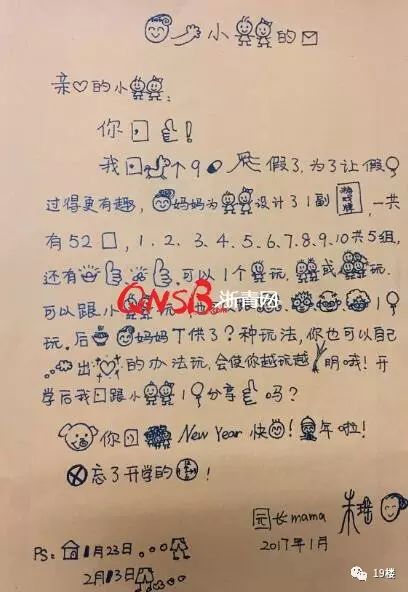 小的
亲的小:
你!
我个9假了,为了让假
过得更有趣,妈妈为设计了1副 一共
有52,1.2.3.4.5.6.7.8.9.10共5组,
还有、可以1个玩,或玩,
可以跟小玩
QNSB.com 浙青网
1
玩.后妈妈丁供了?种玩法,你也可以自
出的办法玩,会使你越玩越明哦!开
学后我跟小1分享吗?
你 New Year 快!年啦!
忘了开学的!
园长mama
2017年1月
PS: 1月23日...
2月13日
19楼